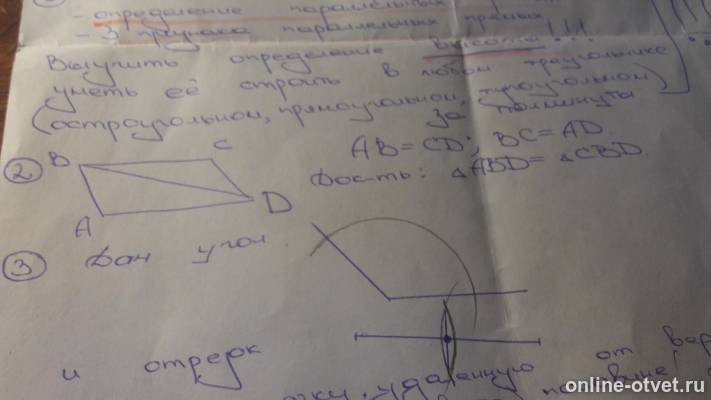 - определение параллельных
- 3 признака параллельных прямых
Выучить определение высоты!!!
уметь её строить в любом треугольнике
(остроугольном, прямоугольном, тупоугольном)
за полминуты
2 B C A D
AB = CD; BC = AD
Док-ть: △ABD = △CBD.
3 Дан угол
и отрезк
удаленную от вер
половине
online-otvet.ru